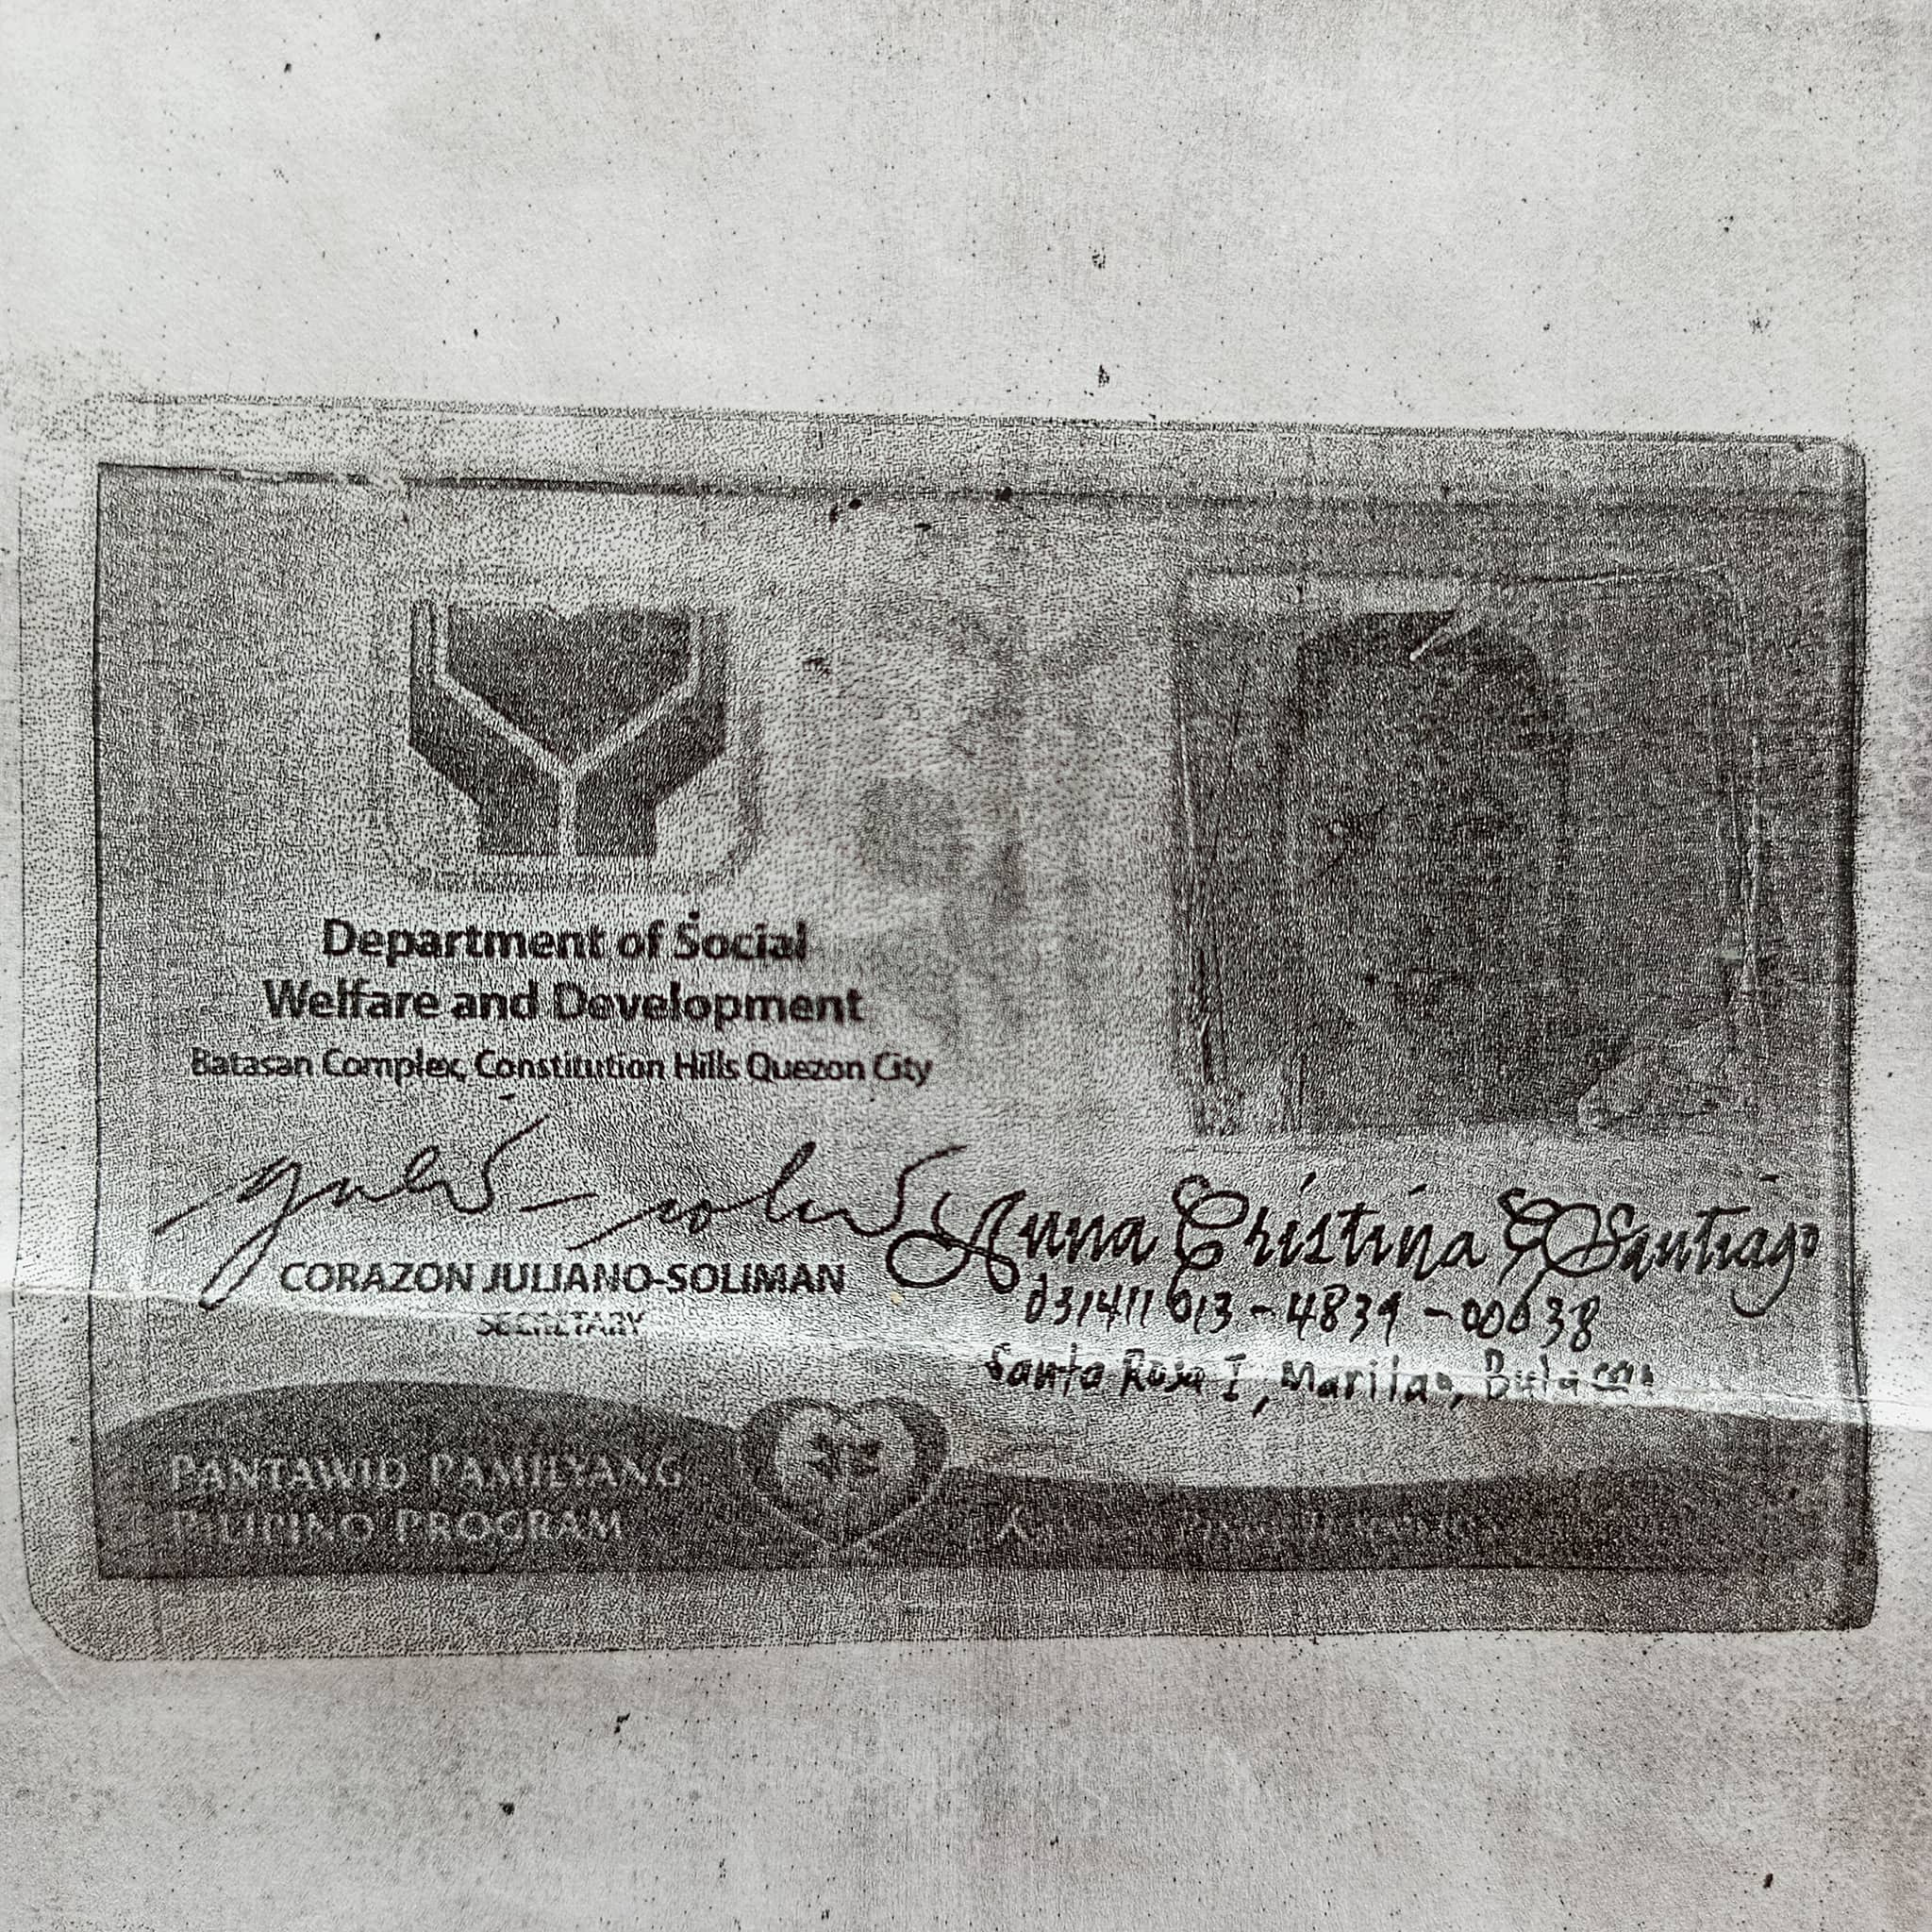 Department of Social
Welfare and Development
Batasan Complex, Constitution Hills Quezon City
CORAZON JULIANO-SOLIMAN
SECRETARY
Anna Cristina Santiago
031411013-4839-00038
Santa Rosa I, Marilao, Bulacan
PANTAWID PAMILYANG
PILIPINO PROGRAM